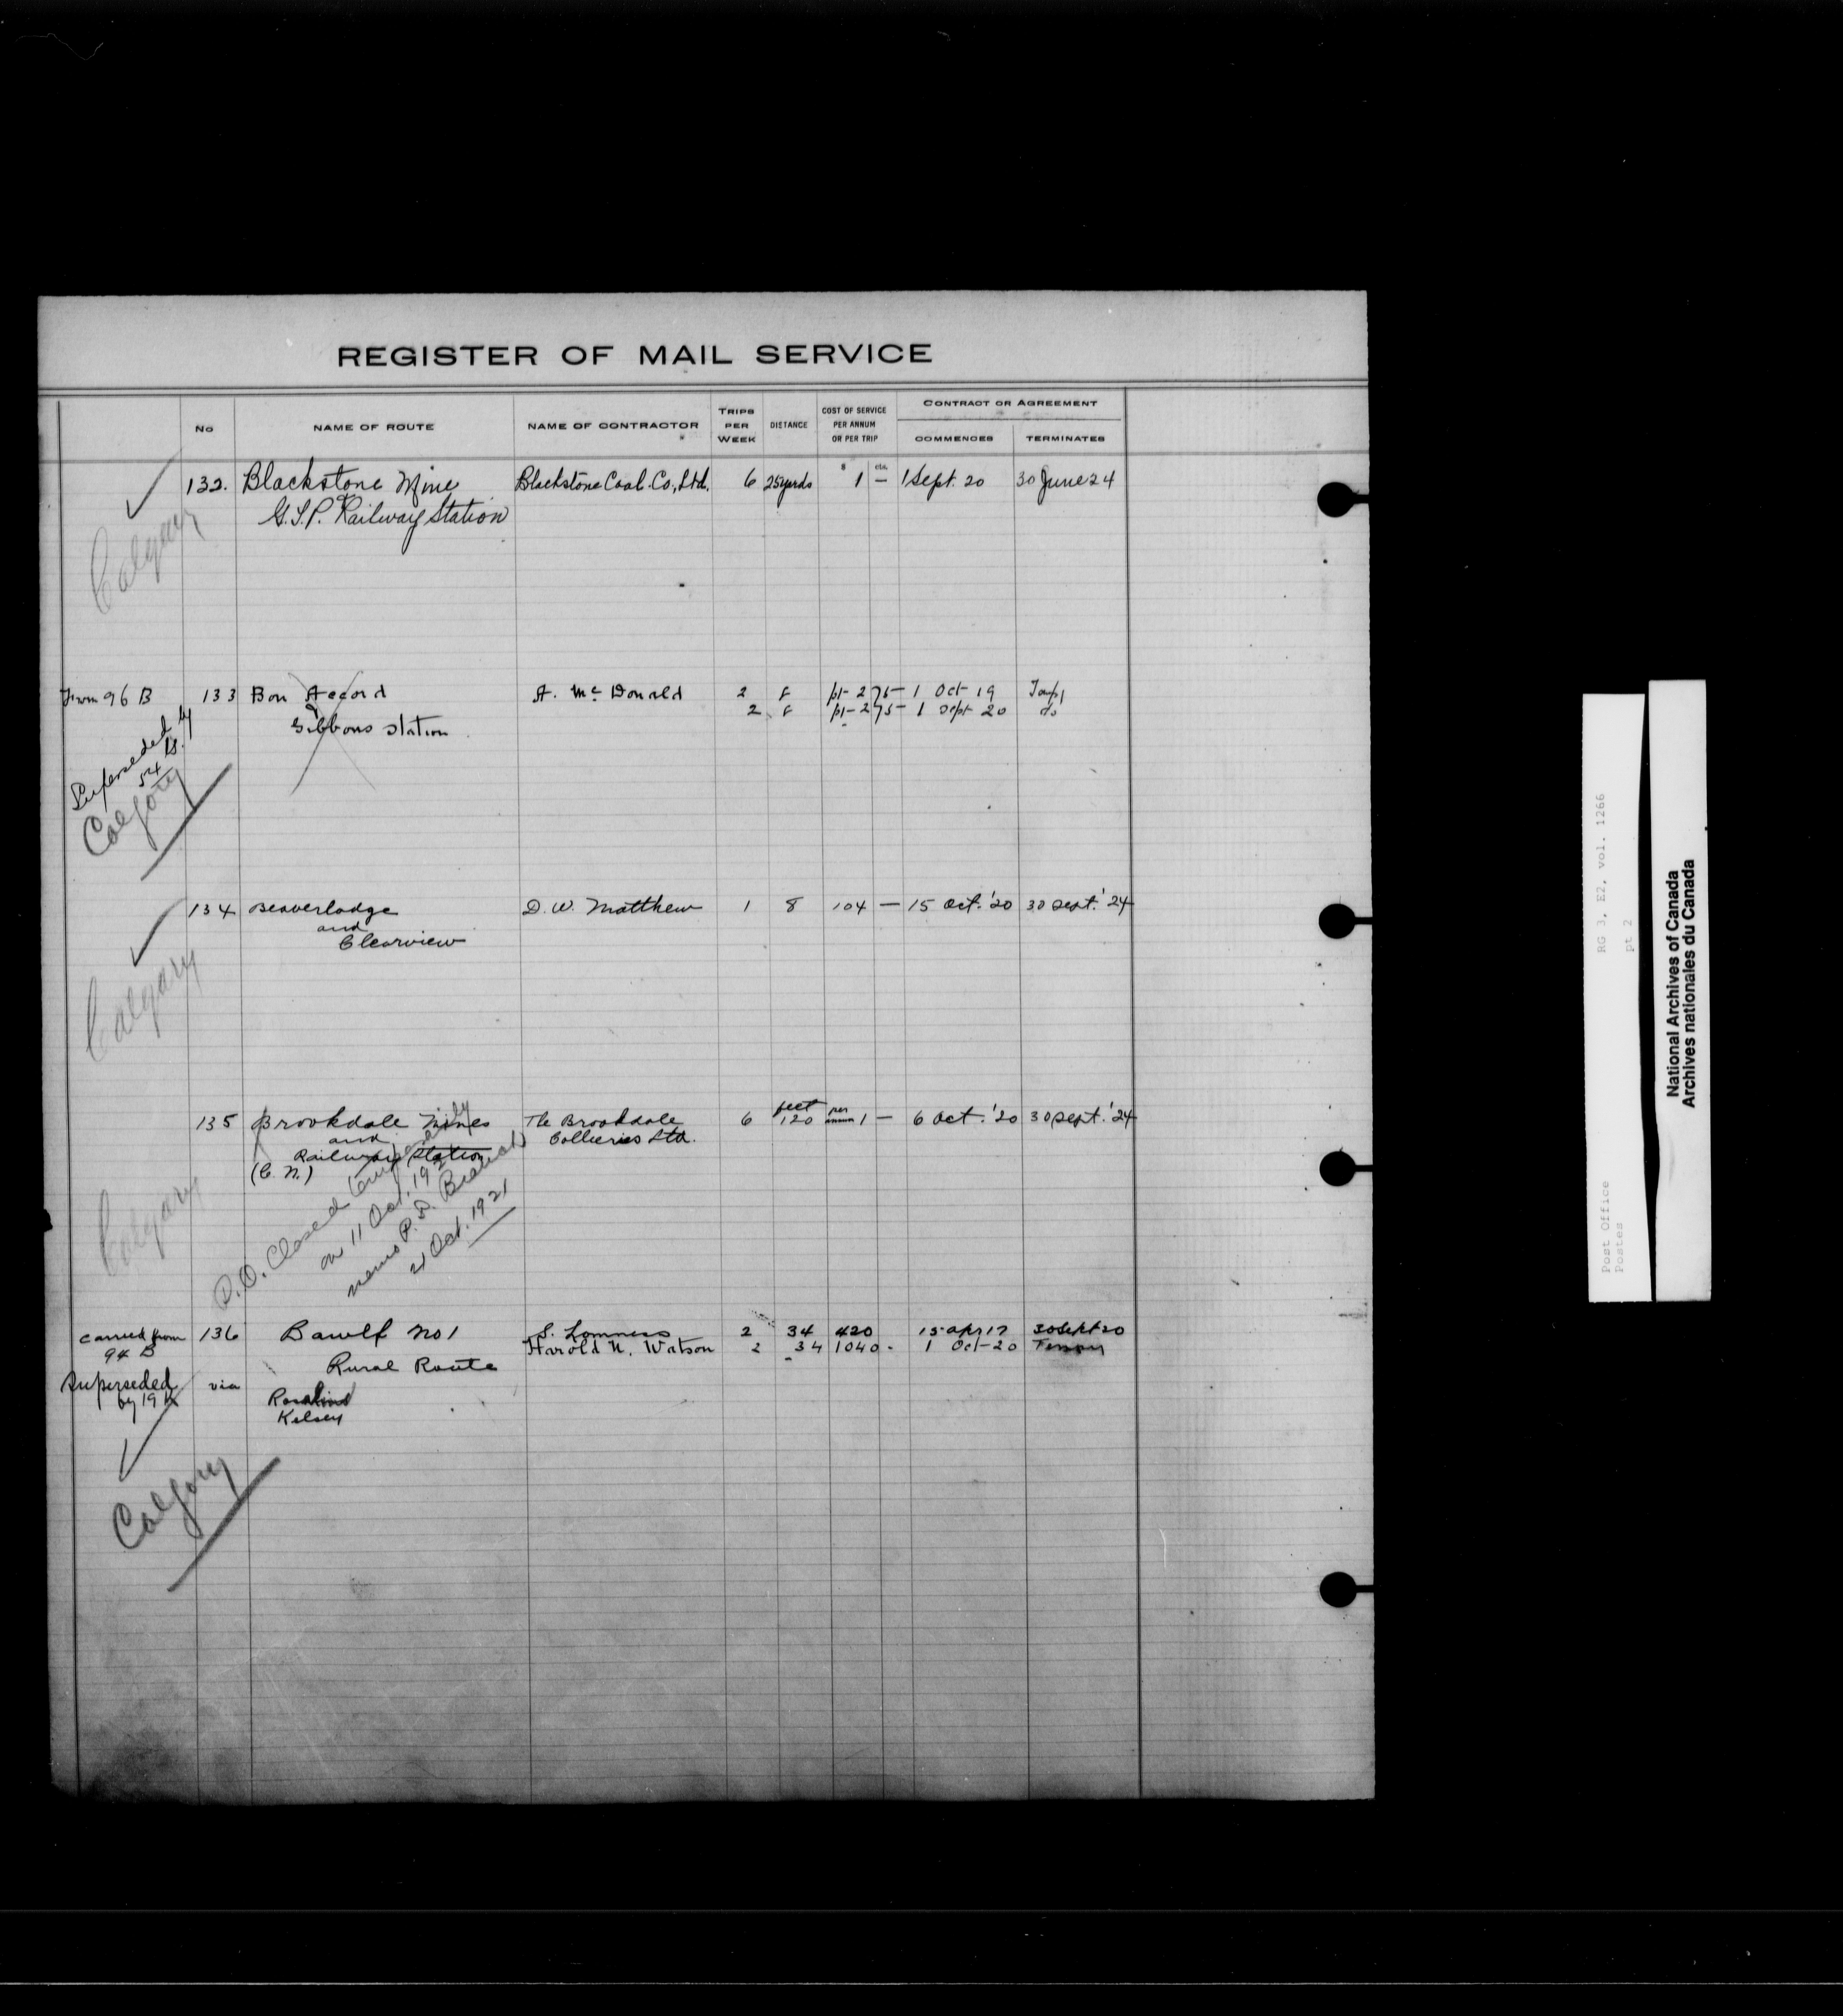 REGISTER OF MAIL SERVICE
No
NAME OF ROUTE
NAME OF CONTRACTOR
TRIPS PER WEEK
DISTANCE
COST OF SERVICE PER ANNUM OR PER TRIP
CONTRACT OR AGREEMENT
COMMENCES
TERMINATES
$ cts.
132. Blackstone Mine Blackstone Coal Co., Ltd. 6 25 yards 1 — 1 Sept. 20 30 June 24
& G.T.P. Railway Station
Calgary
From 96 B 133 Bon Accord A. McDonald 2 pt- 2 75 - 1 Oct 19 Temp
2 pt- 2 75 - 1 Sept 20 do
& Gibbons Station
Superseded by
54 B.
Calgary
134 Beaverlodge D. W. Matthew 1 8 104 — 15 Oct. '20 30 Sept. '24
and
Clearview
Calgary
135 Brookdale Mines The Brookdale 6 feet 120 per annum 1 — 6 Oct. '20 30 Sept. '24
and Collieries Ltd.
Railway Station
(C. N.)
P.O. Closed temporarily
on 11 Oct. 192
memo P.S. Branch
21 Oct. 1921
Calgary
Carried from 136 Bawlf No 1 S. Lomness 2 34 420 15 Apr 17 30 Sept 20
94 B Harold N. Watson 2 34 1040 - 1 Oct-20
Rural Route
Superseded via Rosalind
by 19
Kelsey
Calgary
RG 3, E2, vol. 1266
pt 2
Post Office
Postes
National Archives of Canada
Archives nationales du Canada